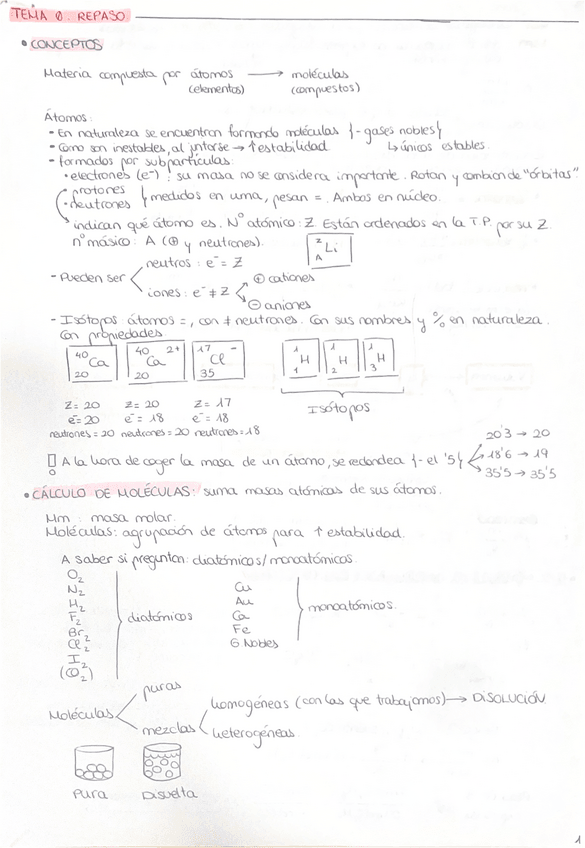 TEMA 0. REPASO
• CONCEPTOS
Materia compuesta por átomos → moléculas
(elementos) (compuestos)
Átomos:
- En naturaleza se encuentran formando moléculas {- gases nobles}
- Como son inestables, al juntarse → ↑ estabilidad ↳ únicos estables.
- formados por subpartículas:
• electrones (e⁻): su masa no se considera importante. Rotan y cambian de "órbitas"
• protones
• neutrones } medidos en uma, pesan =. Ambos en núcleo.
indican qué átomo es. Nº atómico: Z. Están ordenados en la T.P. por su Z.
nº másico: A (⊕ y neutrones). Z Li A
neutros: e⁻ = Z
- Pueden ser
iones: e⁻ ≠ Z
⊕ cationes
⊖ aniones
- Isótopos átomos =, con ≠ neutrones. Con sus nombres y % en naturaleza.
Con propiedades
40 Ca 20 40 Ca 2+ 20 17 Cl - 35 1 H 1 1 H 2 1 H 3
Isótopos
Z = 20 Z = 20 Z = 17
e⁻ = 20 e⁻ = 18 e⁻ = 18
neutrones = 20 neutrones = 20 neutrones = 18
A la hora de coger la masa de un átomo, se redondea {- el '5}
20'3 → 20
18'6 → 19
35'5 → 35'5
• CÁLCULO DE MOLÉCULAS: suma masas atómicas de sus átomos.
Mm : masa molar.
Moléculas: agrupación de átomos para ↑ estabilidad.
A saber si preguntan: diatómicos / monoatómicos.
O₂
N₂
H₂
F₂
Br₂
Cl₂
I₂
(CO₂)
diatómicos
Cu
Au
Ca
Fe
G Nobles
monoatómicos.
puras
Moléculas
mezclas
homogéneas (con las que trabajamos) → DISOLUCIÓN
heterogéneas.
Pura Disuelta
1